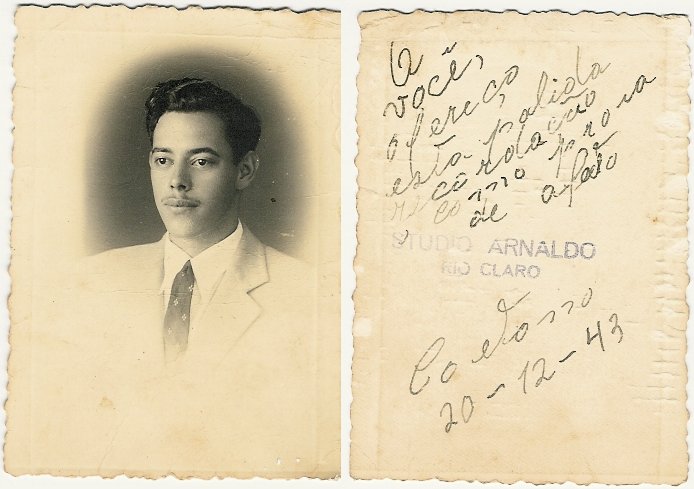 A
você,
ofereço
esta palida
recordação
como prova
de afeto
STUDIO ARNALDO
RIO CLARO
20-12-43